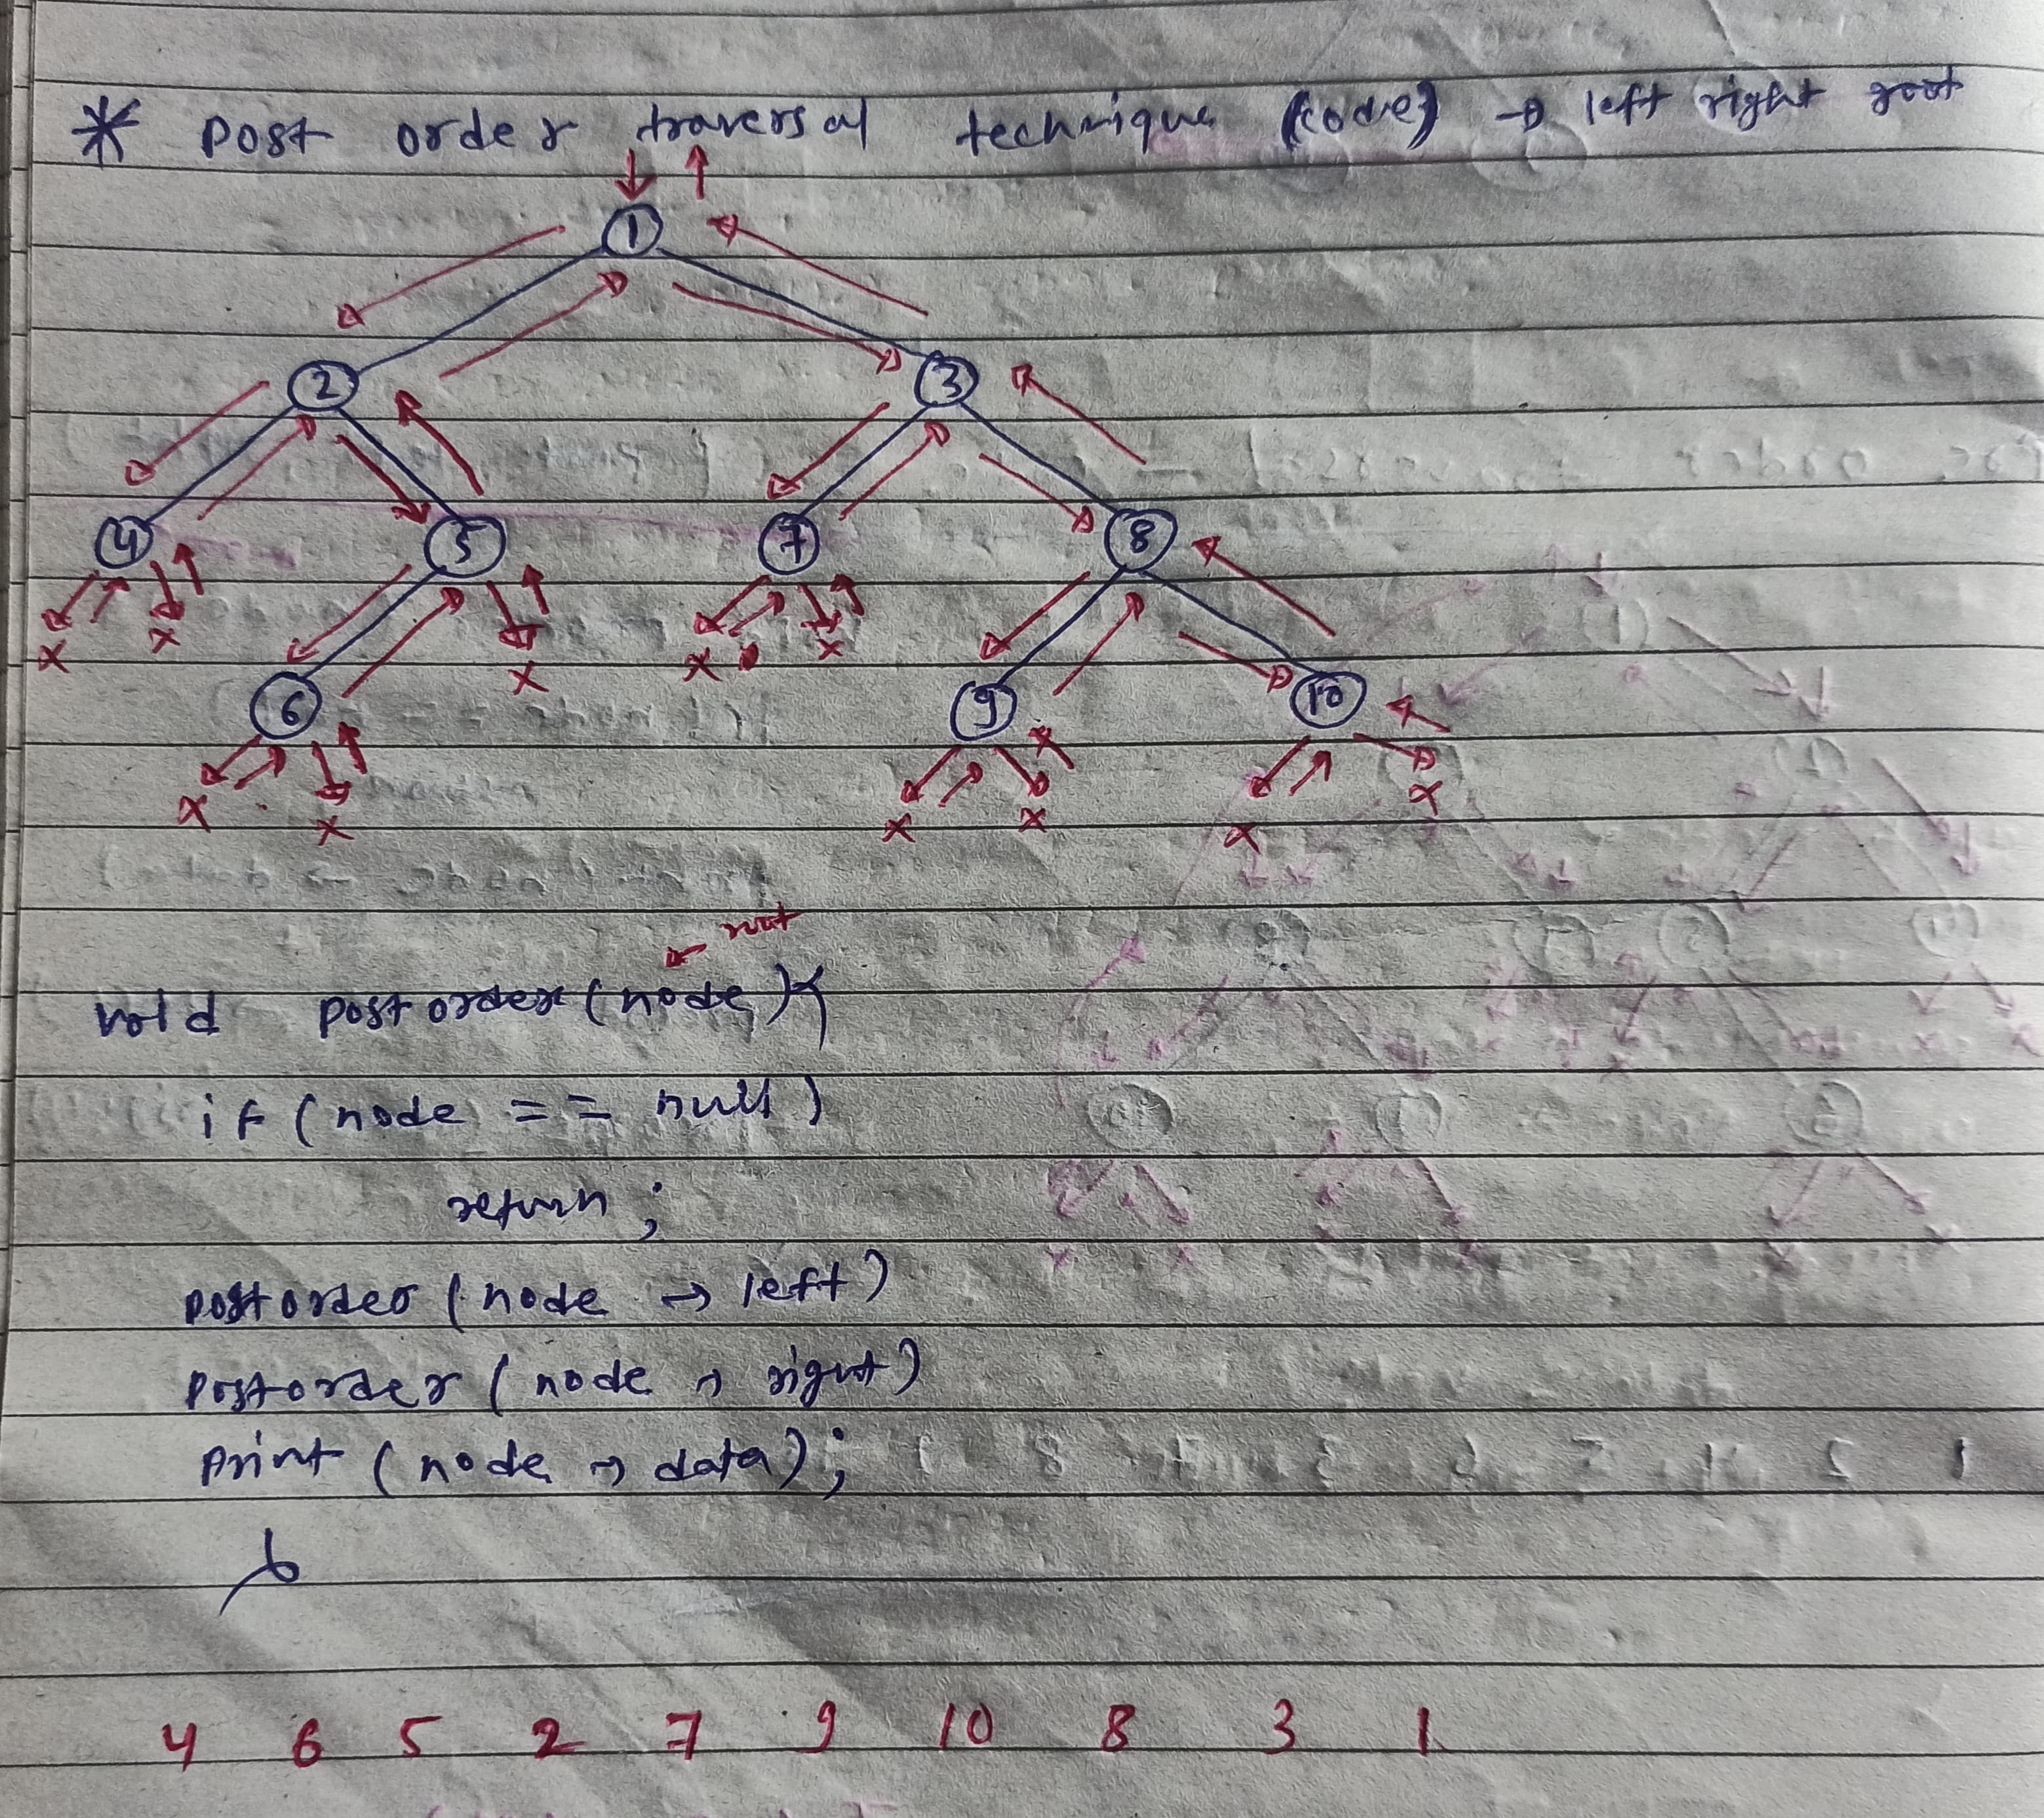 * post order traversal technique (code) → left right root
1
2 3
4 5 7 8
6 9 10
x x x x x x x x x x x
← root
void postorder (node) {
if (node == null)
return ;
postorder (node → left)
postorder (node → right)
print (node → data);
}
4 6 5 2 7 9 10 8 3 1